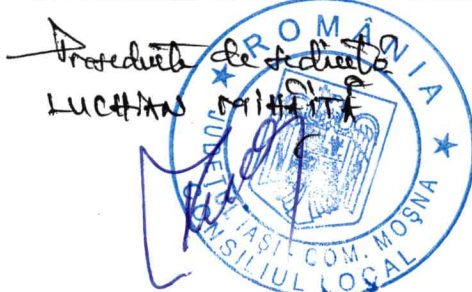 Președinte de ședință
LUCHIAN MIHĂIȚĂ
ROMÂNIA
JUDEȚUL IAȘI - COM. MOȘNA
CONSILIUL LOCAL